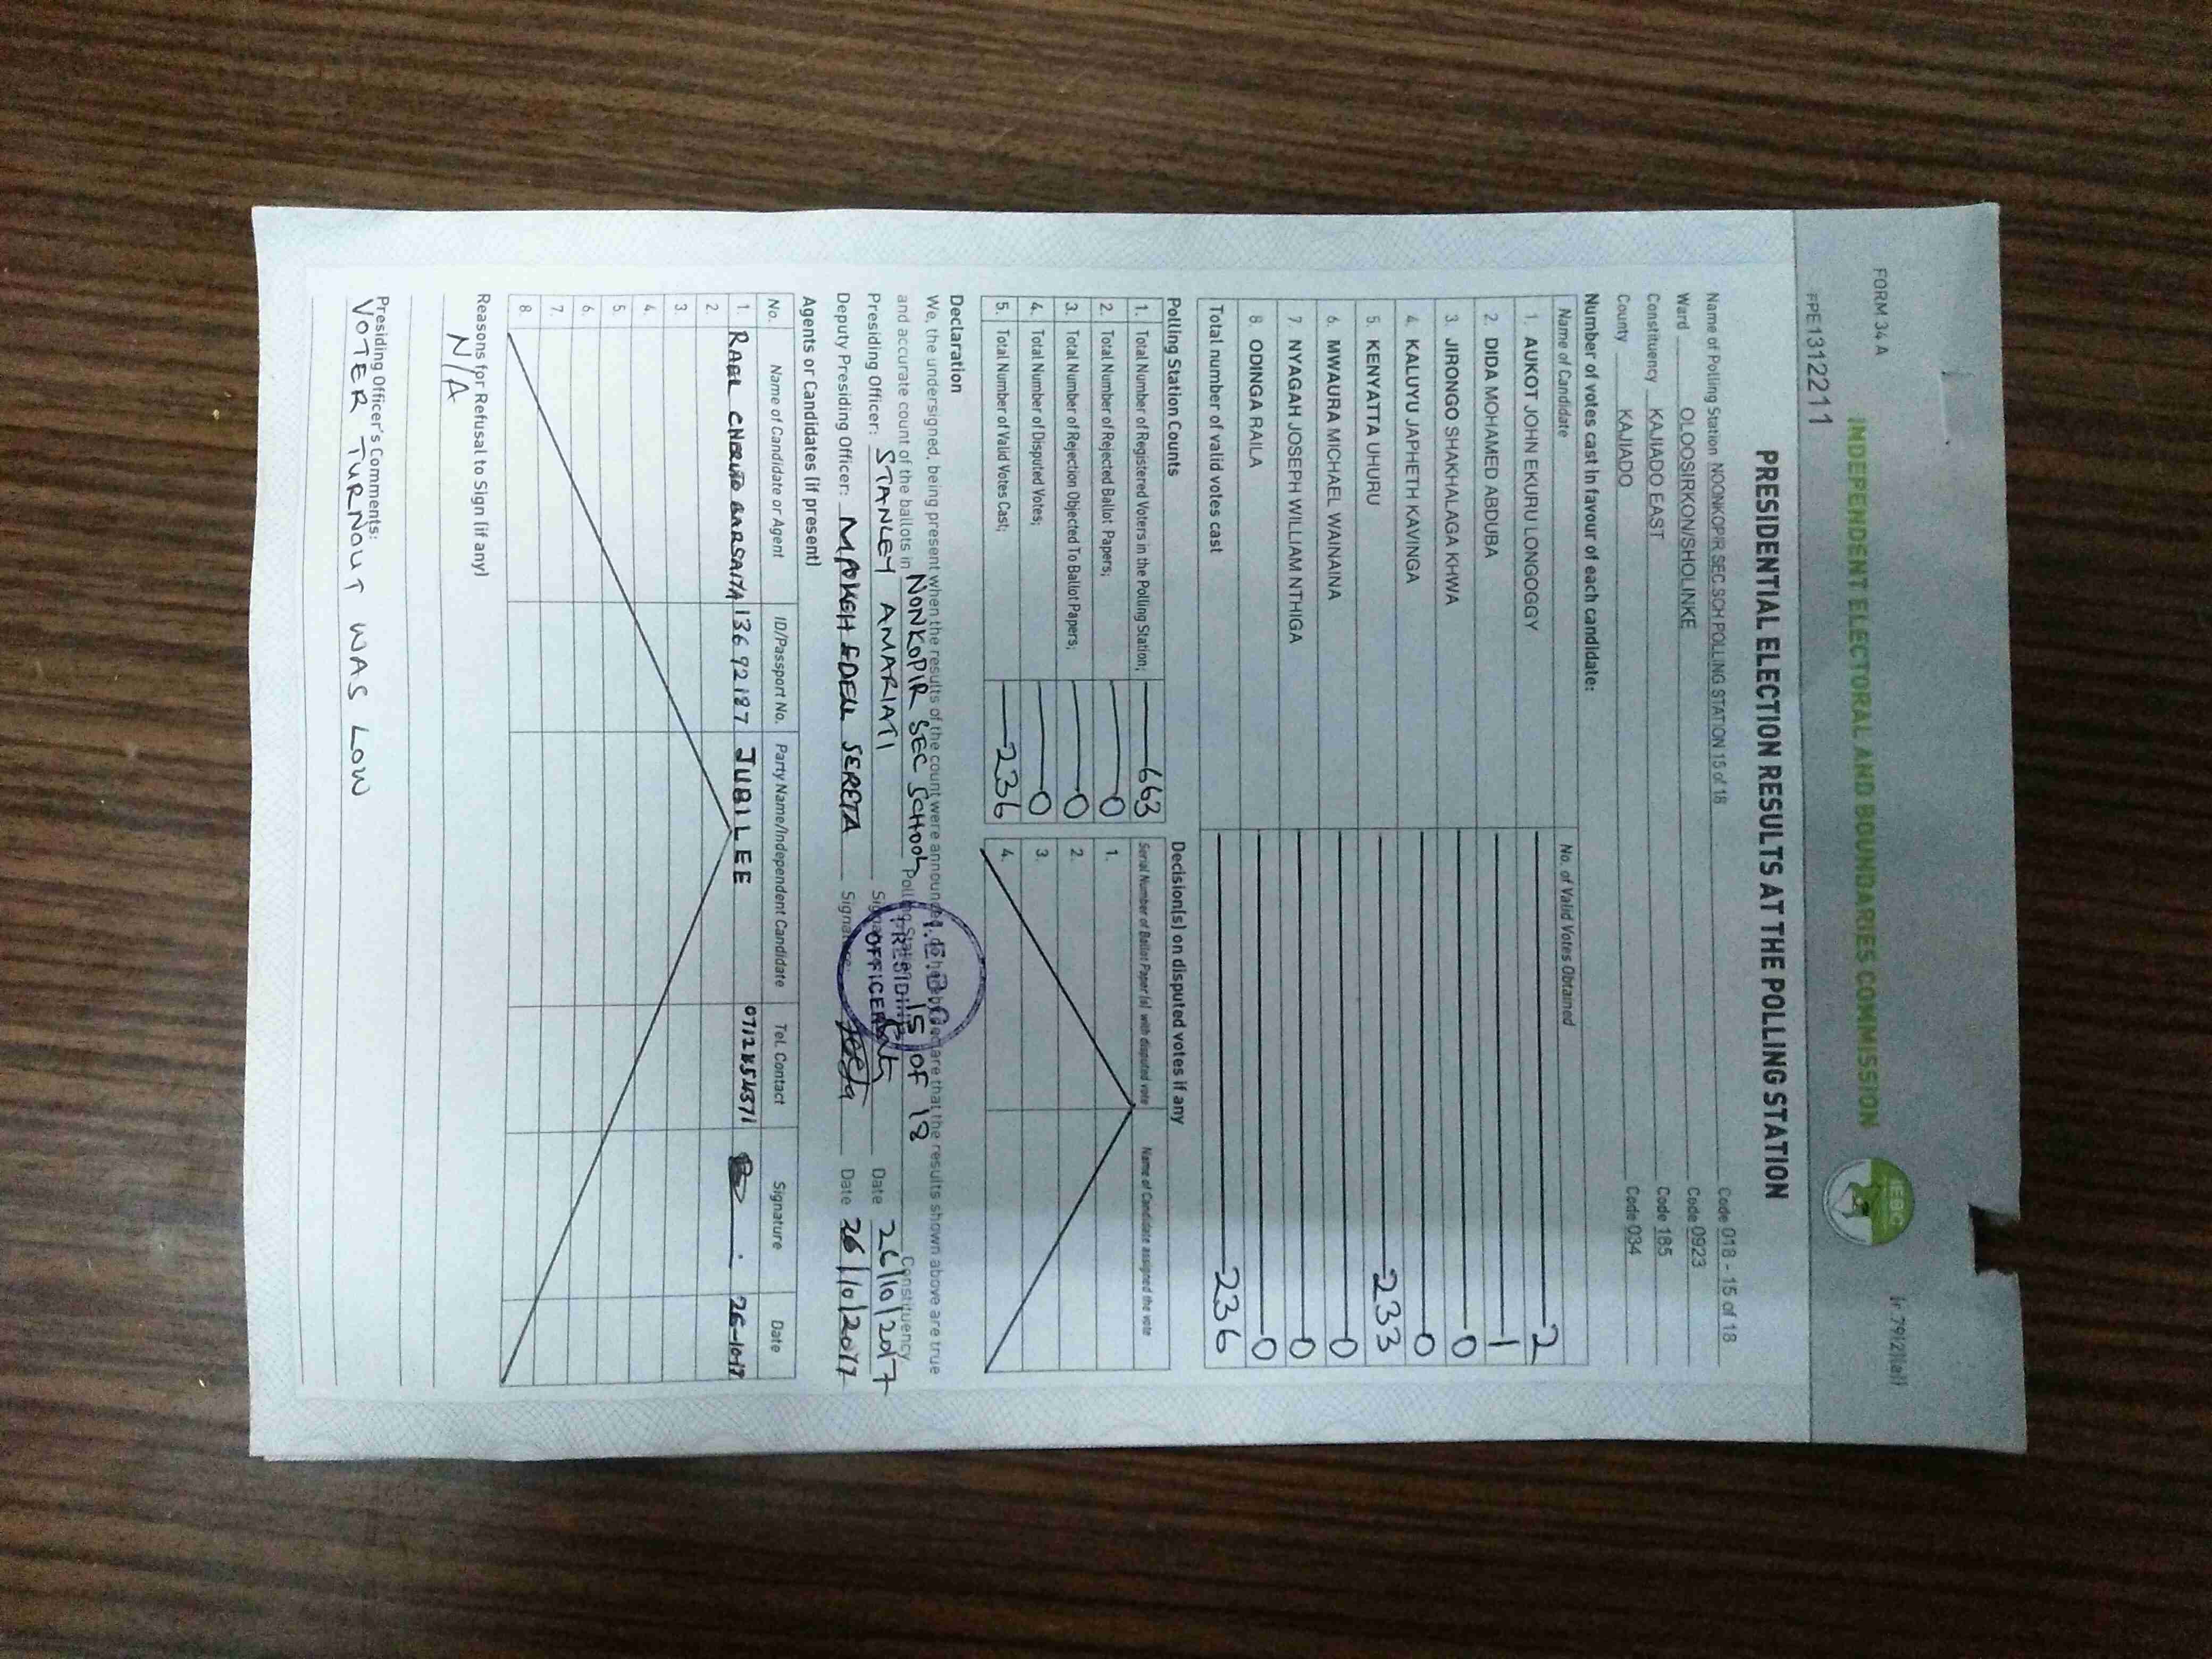 FORM 34 A
(r 79(2)(a))
INDEPENDENT ELECTORAL AND BOUNDARIES COMMISSION
IEBC
FPE1312211
PRESIDENTIAL ELECTION RESULTS AT THE POLLING STATION
Name of Polling Station NOONKOPIR SEC.SCH POLLING STATION 15 of 18 Code 018 - 15 of 18
Ward OLOOSIRKON/SHOLINKE Code 0923
Constituency KAJIADO EAST Code 185
County KAJIADO Code 034
Number of votes cast in favour of each candidate:
Name of Candidate No. of Valid Votes Obtained
1. AUKOT JOHN EKURU LONGOGGY 2
2. DIDA MOHAMED ABDUBA 1
3. JIRONGO SHAKHALAGA KHWA 0
4. KALUYU JAPHETH KAVINGA 0
5. KENYATTA UHURU 233
6. MWAURA MICHAEL WAINAINA 0
7. NYAGAH JOSEPH WILLIAM NTHIGA 0
8. ODINGA RAILA 0
Total number of valid votes cast 236
Polling Station Counts Decision(s) on disputed votes if any
1. Total Number of Registered Voters in the Polling Station; 663 Serial Number of Ballot Paper(s) with disputed vote Name of Candidate assigned the vote
2. Total Number of Rejected Ballot Papers; 0 1.
3. Total Number of Rejection Objected To Ballot Papers; 0 2.
4. Total Number of Disputed Votes; 0 3.
5. Total Number of Valid Votes Cast; 236 4.
Declaration
We, the undersigned, being present when the results of the count were announced, do hereby declare that the results shown above are true
and accurate count of the ballots in NONKOPIR SEC SCHOOL Polling Station 15 OF 18 Constituency
Presiding Officer: STANLEY AMARIATI Signature Date 26/10/2017
Deputy Presiding Officer: SERETA Signature: Date 26/10/2017
PRESIDING
OFFICER
Agents or Candidates (if present)
No. Name of Candidate or Agent ID/Passport No. Party Name/Independent Candidate Tel. Contact Signature Date
1. RAEL 13692187 JUBILEE 26-10-17
2.
3.
4.
5.
6.
7.
8.
Reasons for Refusal to Sign (if any)
N/A
Presiding Officer's Comments:
VOTER TURNOUT WAS LOW